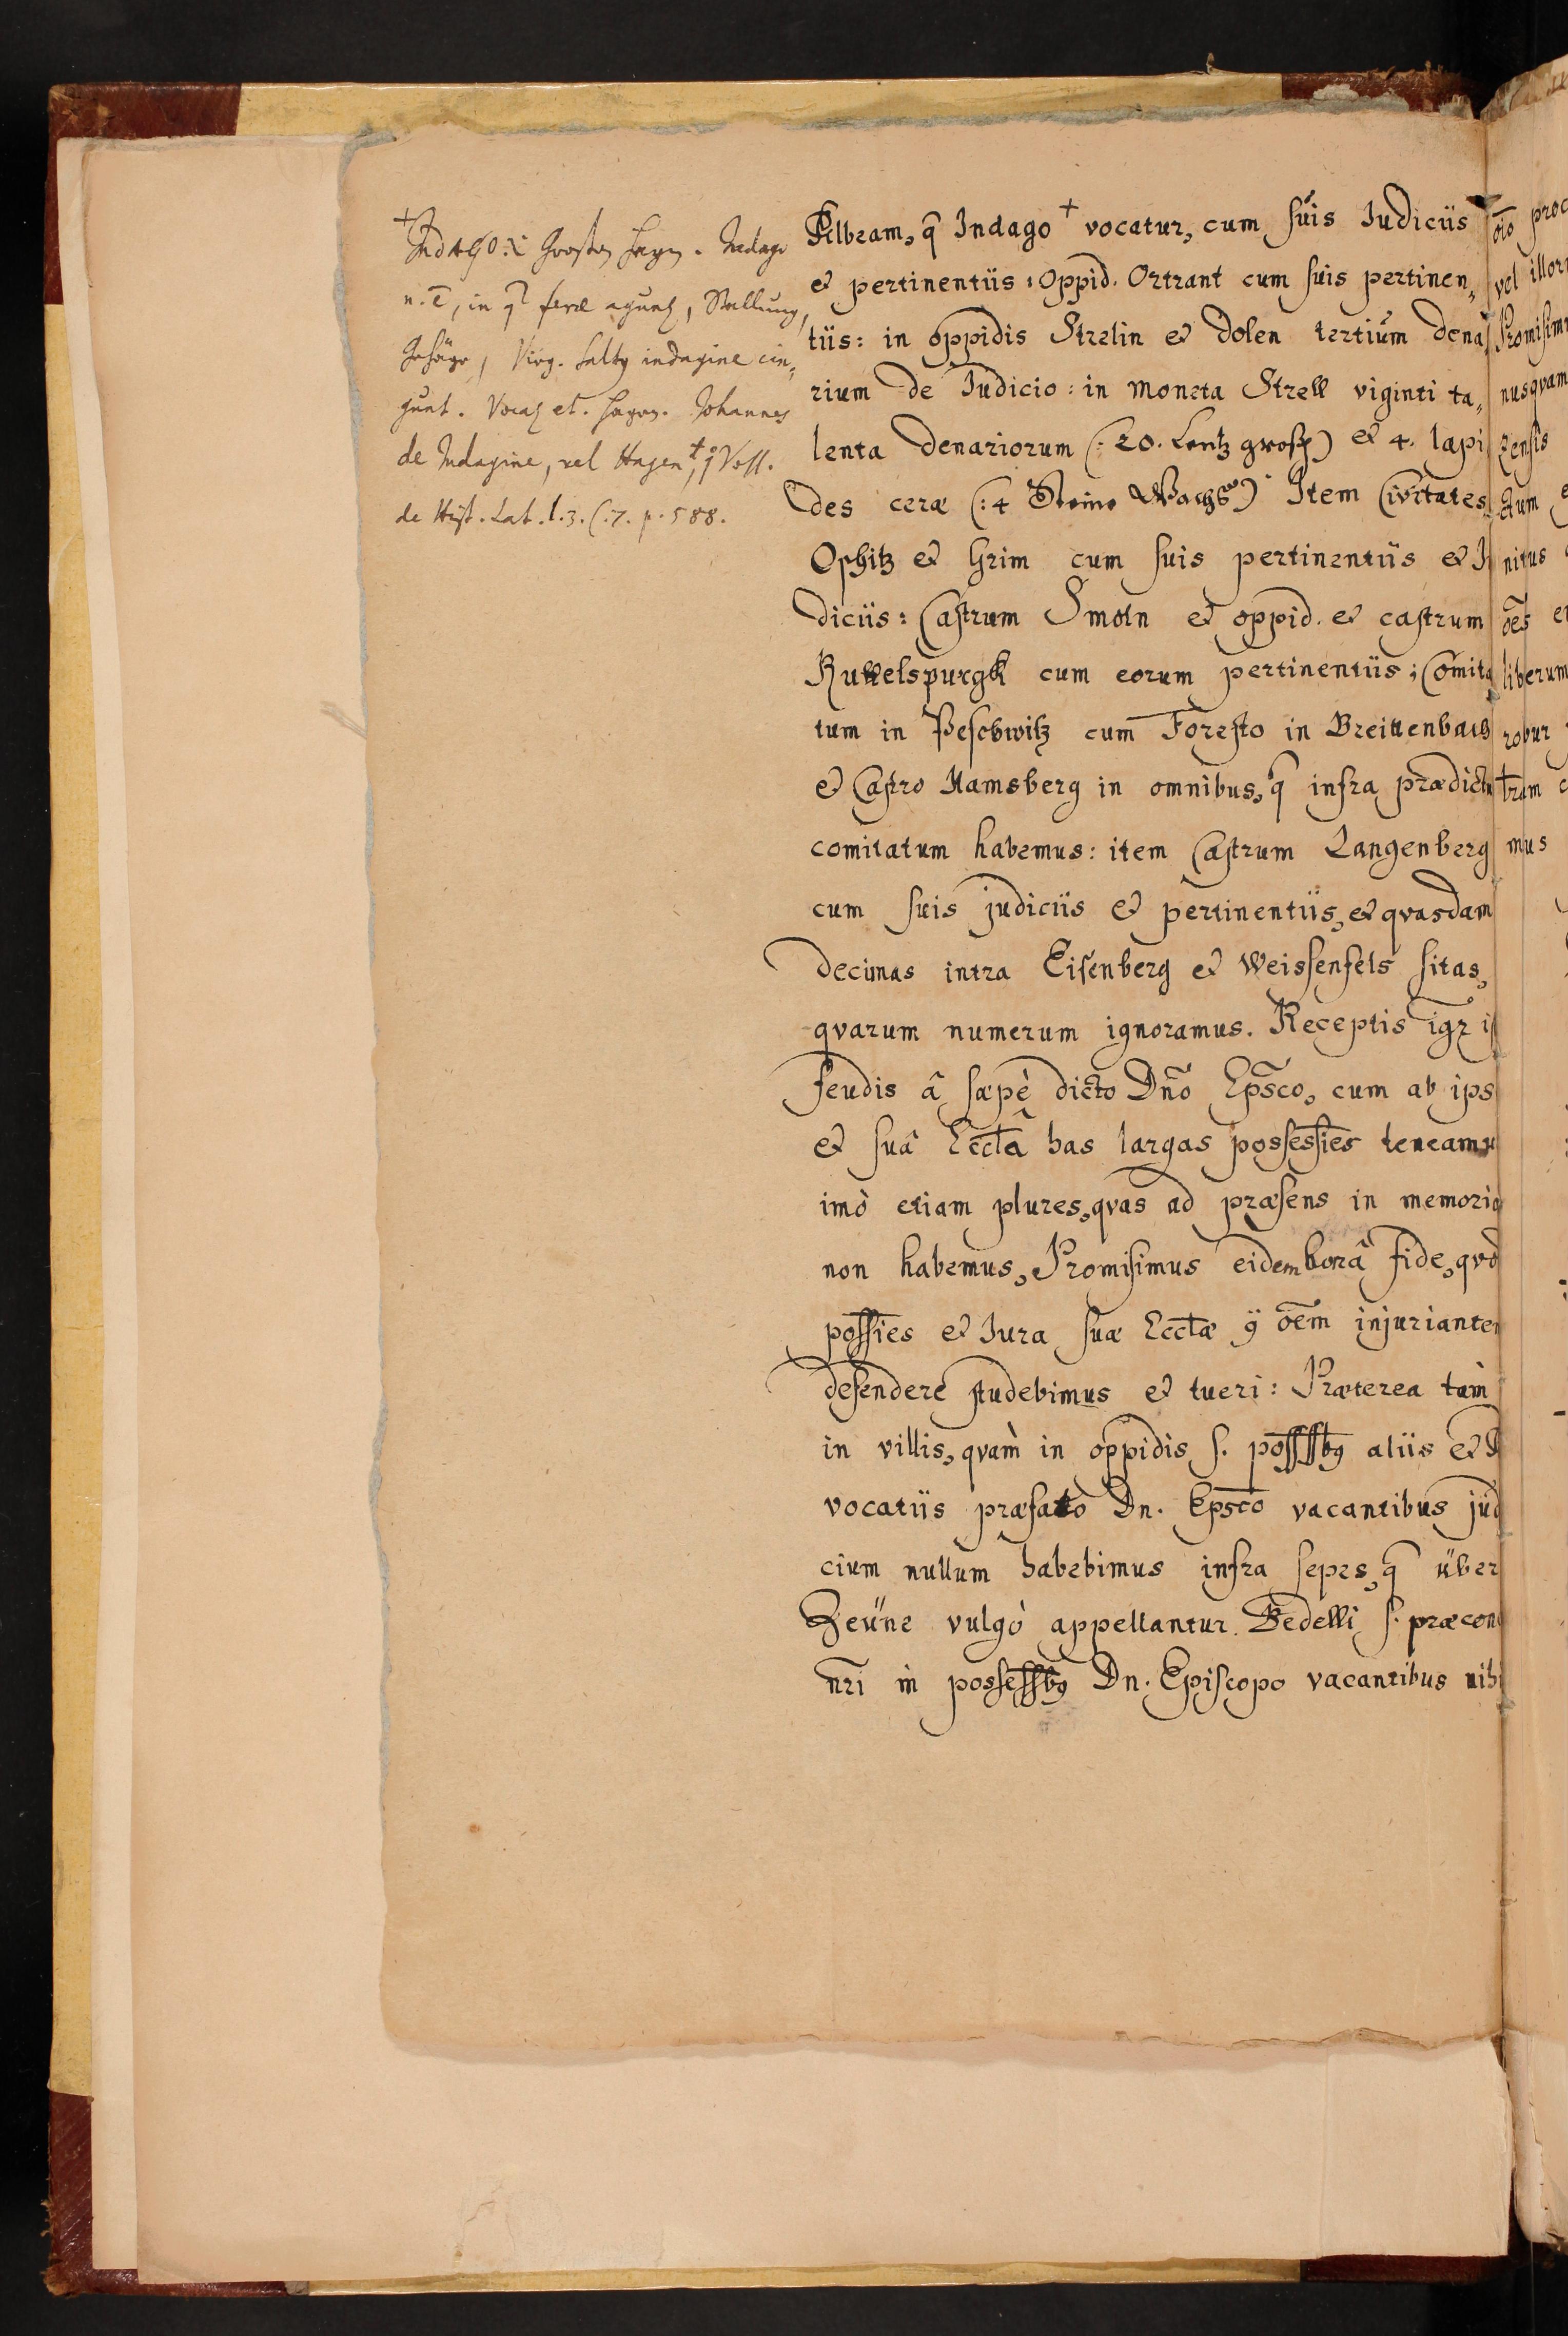 +
IndAGO: Grosten Hayn. Indago
n. ē, in q̄ feræ agunt, Stallung,
Gehäge, Virg. Saltus indagine cin⸗
gunt. Vocat et. Hagen. Johannes
de Indagine, vel Hagen +, Voss.
de Hist. Lat. l. 3. C. 7. p. 588.
Albeam, q̄ Indago + vocatur, cum suis Iudiciis
et pertinentiis: Oppid. Ortrant cum suis pertinen⸗
tiis: in oppidis Strelin et Dolen tertium dena⸗
rium de Iudicio: in moneta Strell viginti ta⸗
lenta denariorum (: 20. Lentz grosch) et 4. lapi
des ceræ (: 4 Steine Wachs) Item Civitates
Oschitz et Grim cum suis pertinentiis et I
diciis: Castrum Smoln et oppid. et castrum
Ruttelspurgk cum eorum pertinentiis; Comita
tum in Peschwitz cum Foresto in Breittenbach
et Castro Hamsberg in omnibus, q̄ infra prædictu
comitatum habemus: item Castrum Langenberg
cum suis judiciis et pertinentiis, et qvasdam
decimas intra Eisenberg et Weissenfels sitas,
qvarum numerum ignoramus. Receptis igr i
feudis â sæpè dicto Dn̄o Ep̄sco, cum ab ips
et suâ Eccl̄â has largas possessīes teneamu
imò etiam plures, qvas ad præsens in memoria
non habemus, Promisimus eidem bonâ fide, qvd
possīes et Jura suæ Eccl̄æ 9 ōem injurianten
defendere studebimus et tueri: Præterea tàm
in villis, qvàm in oppidis s. possssbg aliis et A
vocatiis præfato Dn. Epsco vacantibus jud
cium nullum habebimus infra sepes, q̄ über
Zeüne vulgò appellantur. Bedelli s. præcon
nr̄i in possessbg Dn. Episcopo vacantibus nih
oīo proc
vel illor
Promisimu
nusqvam
zensis
tum
nitus
ōes
liberum
robur
tram
mus